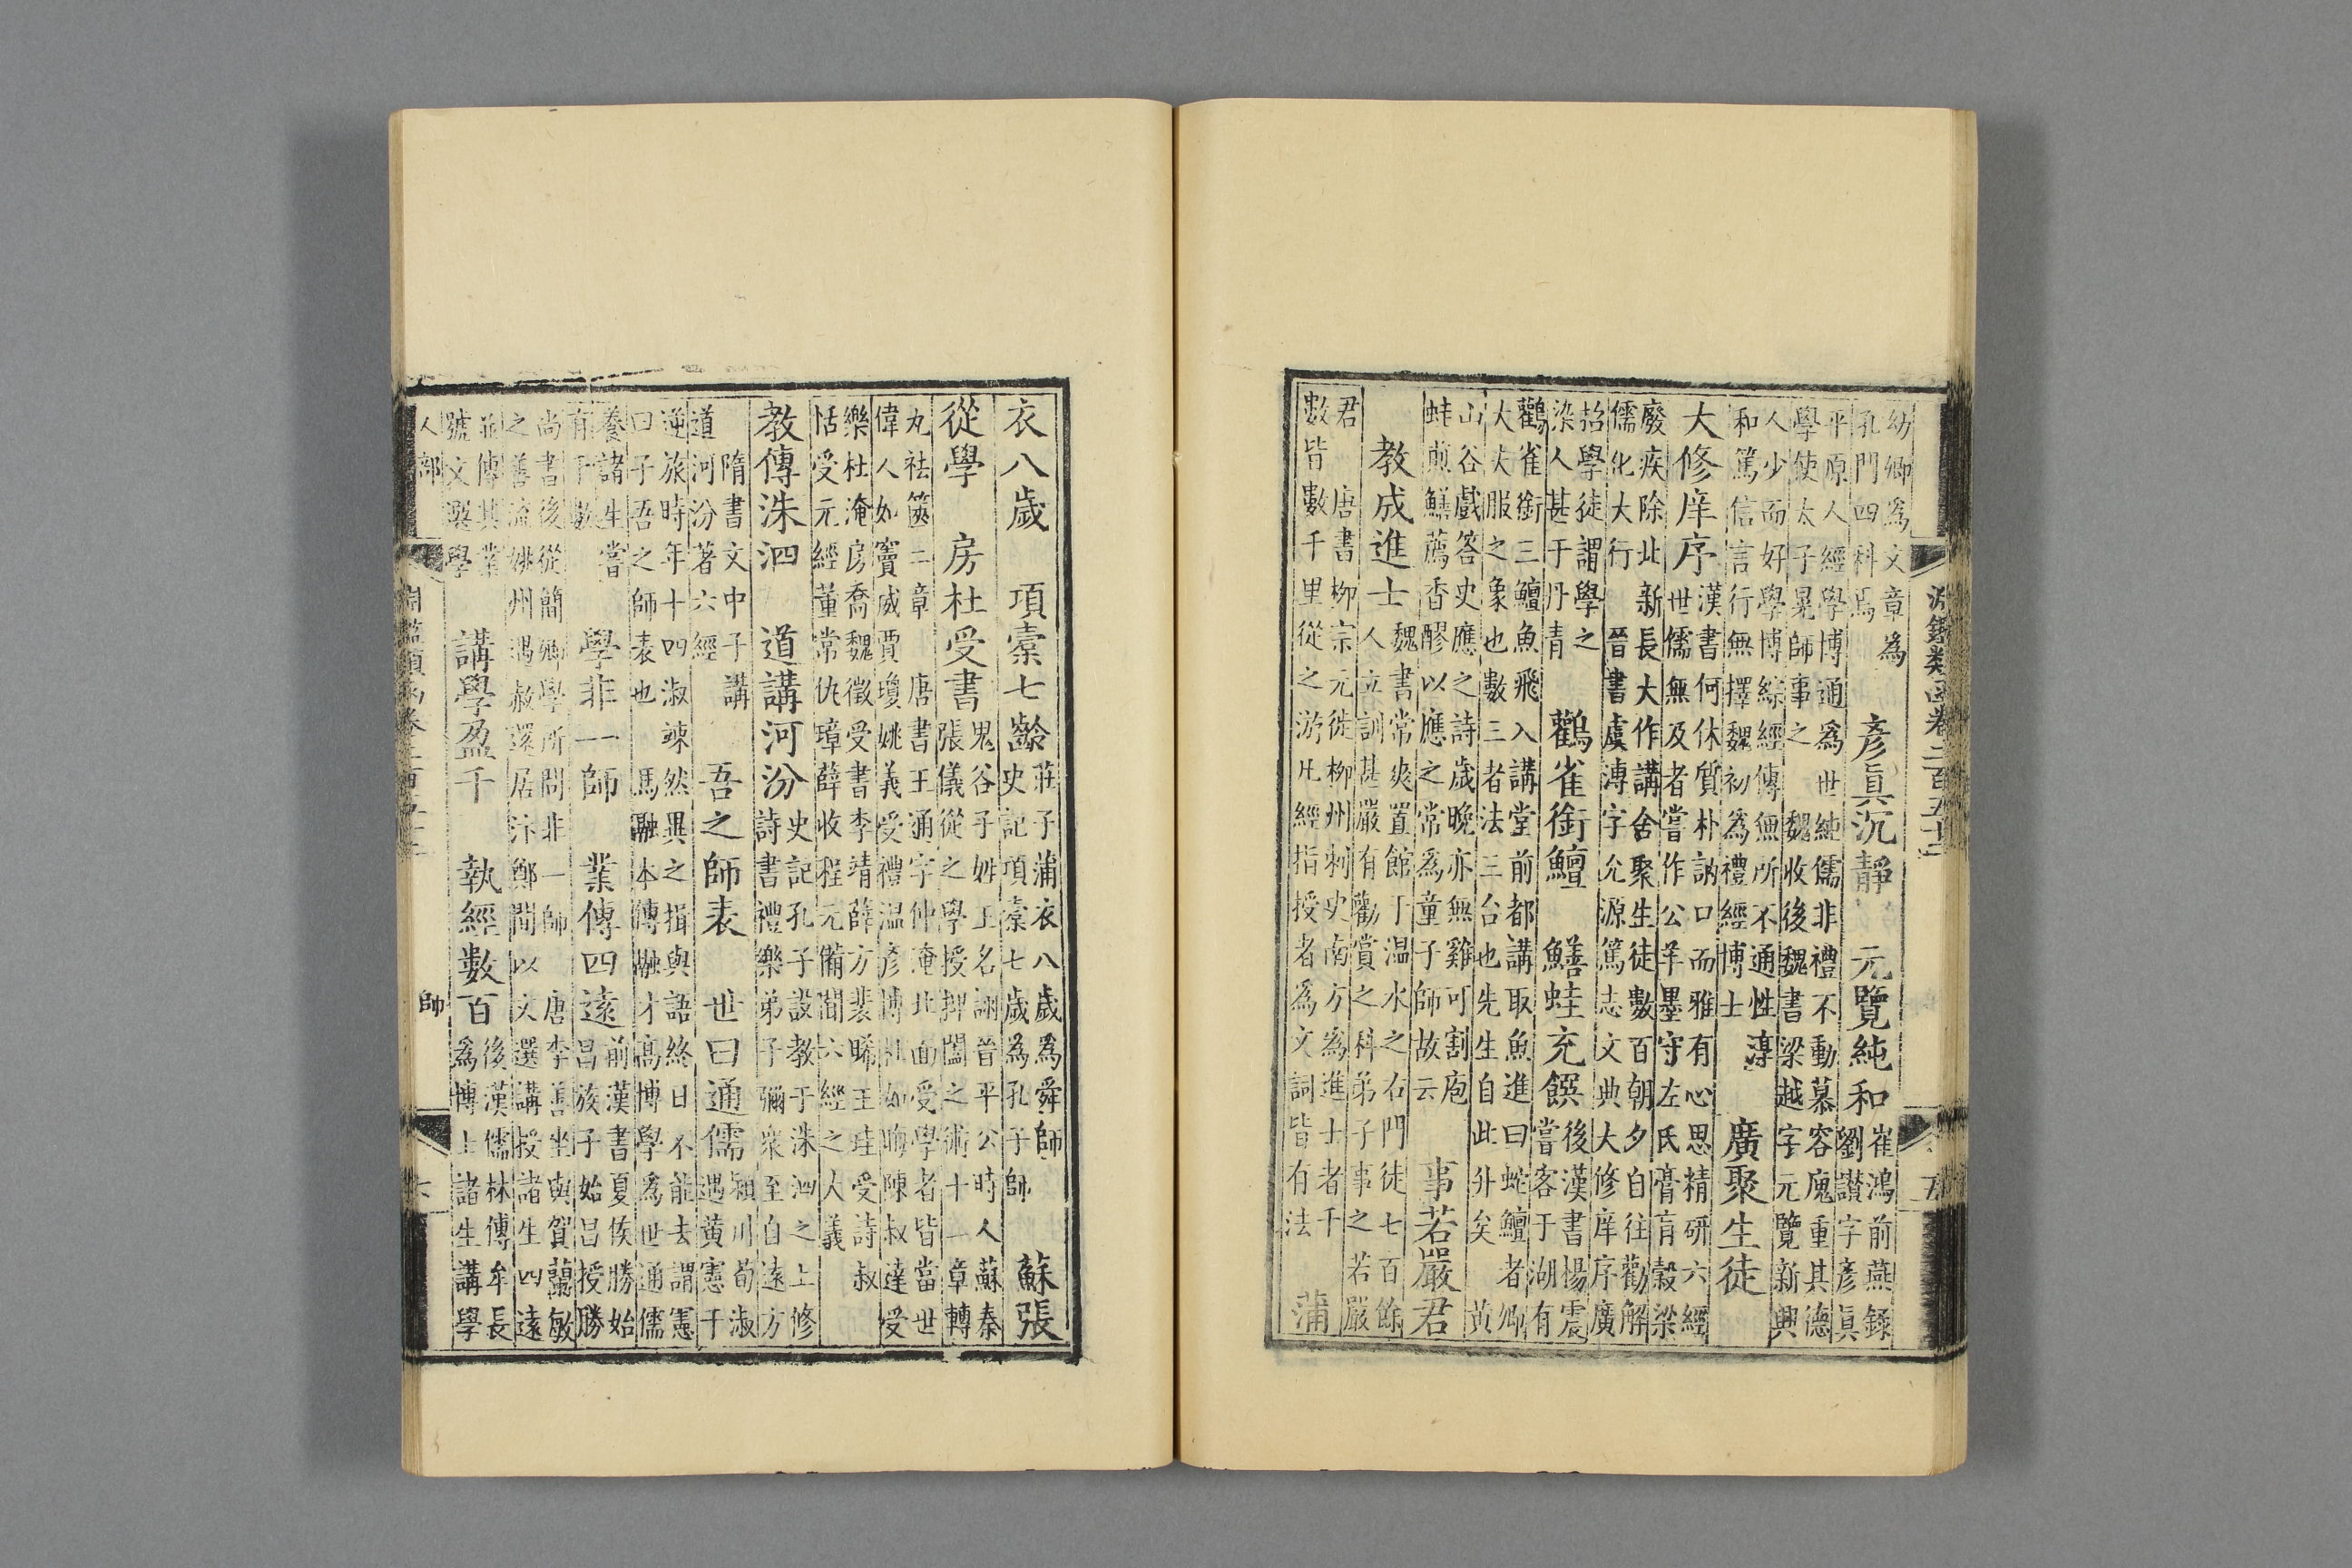 淵鑑類函卷二百五十二 五
幼卿爲文章爲
孔門四科焉
彥眞沉靜 元覽純和
崔鴻前燕錄
劉讃字彥眞
平原人經學博通爲世純儒非禮不動慕容廆重其德
學使太子晃師事之 魏收後魏書梁越字元覽新興
人少而好學博綜經傳無所不通性淳
和篤信言行無擇魏初爲禮經博士
廣聚生徒
大修庠序
漢書何休質朴訥口而雅有心思精研六經
世儒無及者嘗作公羊墨守左氏膏肓穀梁
廢疾除北新長大作講舍聚生徒數百朝夕自往勸解
儒化大行 晉書虞溥字允源篤志文典大修庠序廣
招學徒謂學之
染人甚于丹青
鸛雀銜鱣 鱔蛙充饌
後漢書楊震
嘗客于湖有
鸛雀銜三鱣魚飛入講堂前都講取魚進曰蛇鱣者卿
大夫服之象也數三者法三台也先生自此升矣 黄
山谷戲答史應之詩歲晚亦無雞可割庖
蛙煎鱔薦香醪以應之常爲童子師故云
事若嚴君
教成進士
魏書常爽置館于温水之右門徒七百餘
人立訓甚嚴有勸賞之科弟子事之若嚴
君 唐書柳宗元徙柳州刺史南方爲進士者千
數皆數千里從之游凡經指授者爲文詞皆有法
蒲
衣八歲 項橐七齡
莊子蒲衣八歲爲舜師
史記項橐七歲爲孔子師
蘇張
從學 房杜受書
鬼谷子姓王名詡晉平公時人蘇秦
張儀從之學授捭闔之術十二章轉
丸祛篋二章 唐書王通字仲淹北面受學者皆當世
偉人如竇威賈瓊姚義受禮温彥博杜如晦陳叔達受
樂杜淹房喬魏徵受書李靖薛方裴晞王珪受詩叔
恬受元經董常仇璋薛收程元備聞六經之大義
教傳洙泗 道講河汾
史記孔子設教于洙泗之上修
詩書禮樂弟子彌衆至自遠方
隋書文中子講
道河汾著六經
吾之師表 世曰通儒
潁川荀淑
遇黄憲于
逆旅時年十四淑竦然異之揖與語終日不能去謂憲
曰子吾之師表也 馬融本傳融才高博學爲世通儒
養諸生嘗
有千數
學非一師 業傳四遠
前漢書夏侯勝始
昌族子始昌授勝
尚書後從簡卿學所問非一師 唐李善坐與賀蘭敏
之善流姚州遇赦還居汴鄭間以文選講授諸生四遠
並傳其業
號文選學
講學盈千 執經數百
後漢儒林傳牟長
爲博士諸生講學
人部 淵鑑類函卷二百五十二 師 六